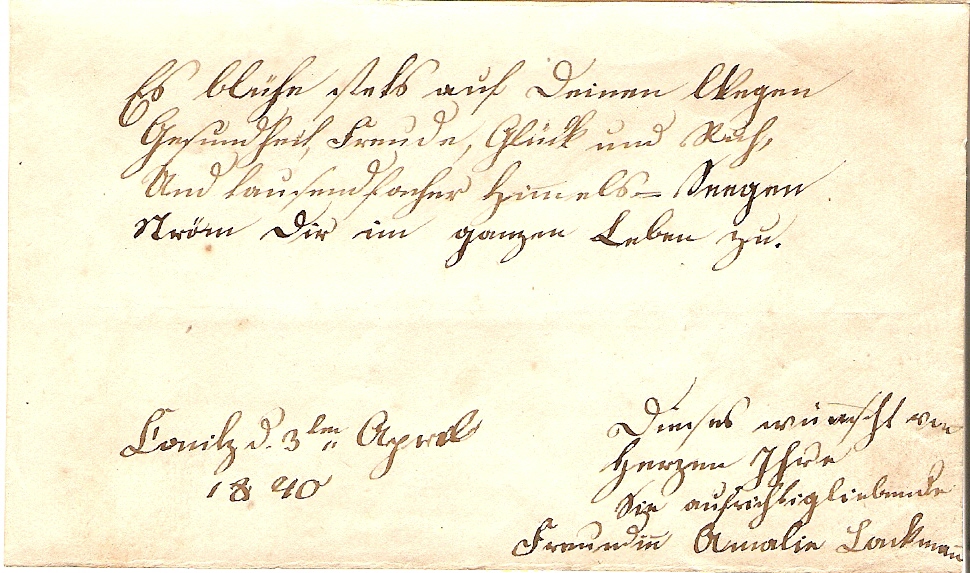 Es blühe stets auf Deinen Wegen
Gesundheit, Freude, Glück und Ruh,
Und tausendfacher Himels- Seegen
Ström Dir im ganzen Leben zu.
Conitz d. 3ten April
1840
Dieses wünscht von
Herzen Ihre
Sie aufrichtigliebende
Freundin Amalie Lackmann